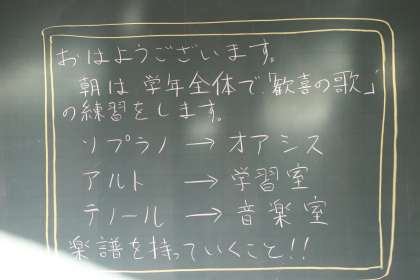 おはようございます。
朝は学年全体で「歓喜の歌」
の練習をします。
ソプラノ → オアシス
アルト → 学習室
テノール → 音楽室
楽譜を持っていくこと!!